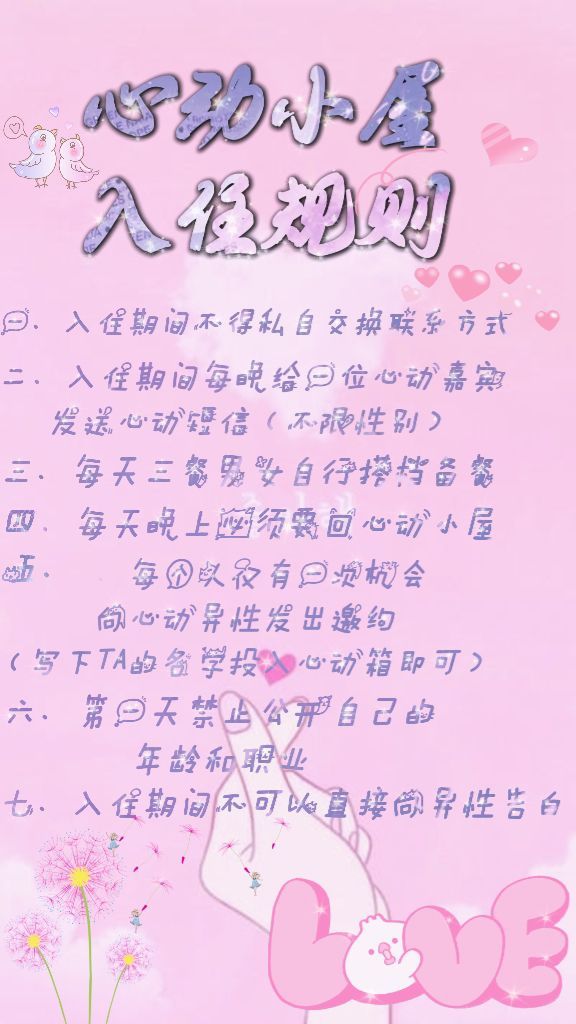 心动小屋
入住规则
一．入住期间不得私自交换联系方式
二．入住期间每晚给一位心动嘉宾
发送心动短信（不限性别）
三．每天三餐男女自行搭档备餐
四．每天晚上必须要回心动小屋
五．每个人仅有一次机会
向心动异性发出邀约
（写下TA的名字投入心动箱即可）
六．第一天禁止公开自己的
年龄和职业
七．入住期间不可以直接向异性告白
LOVE